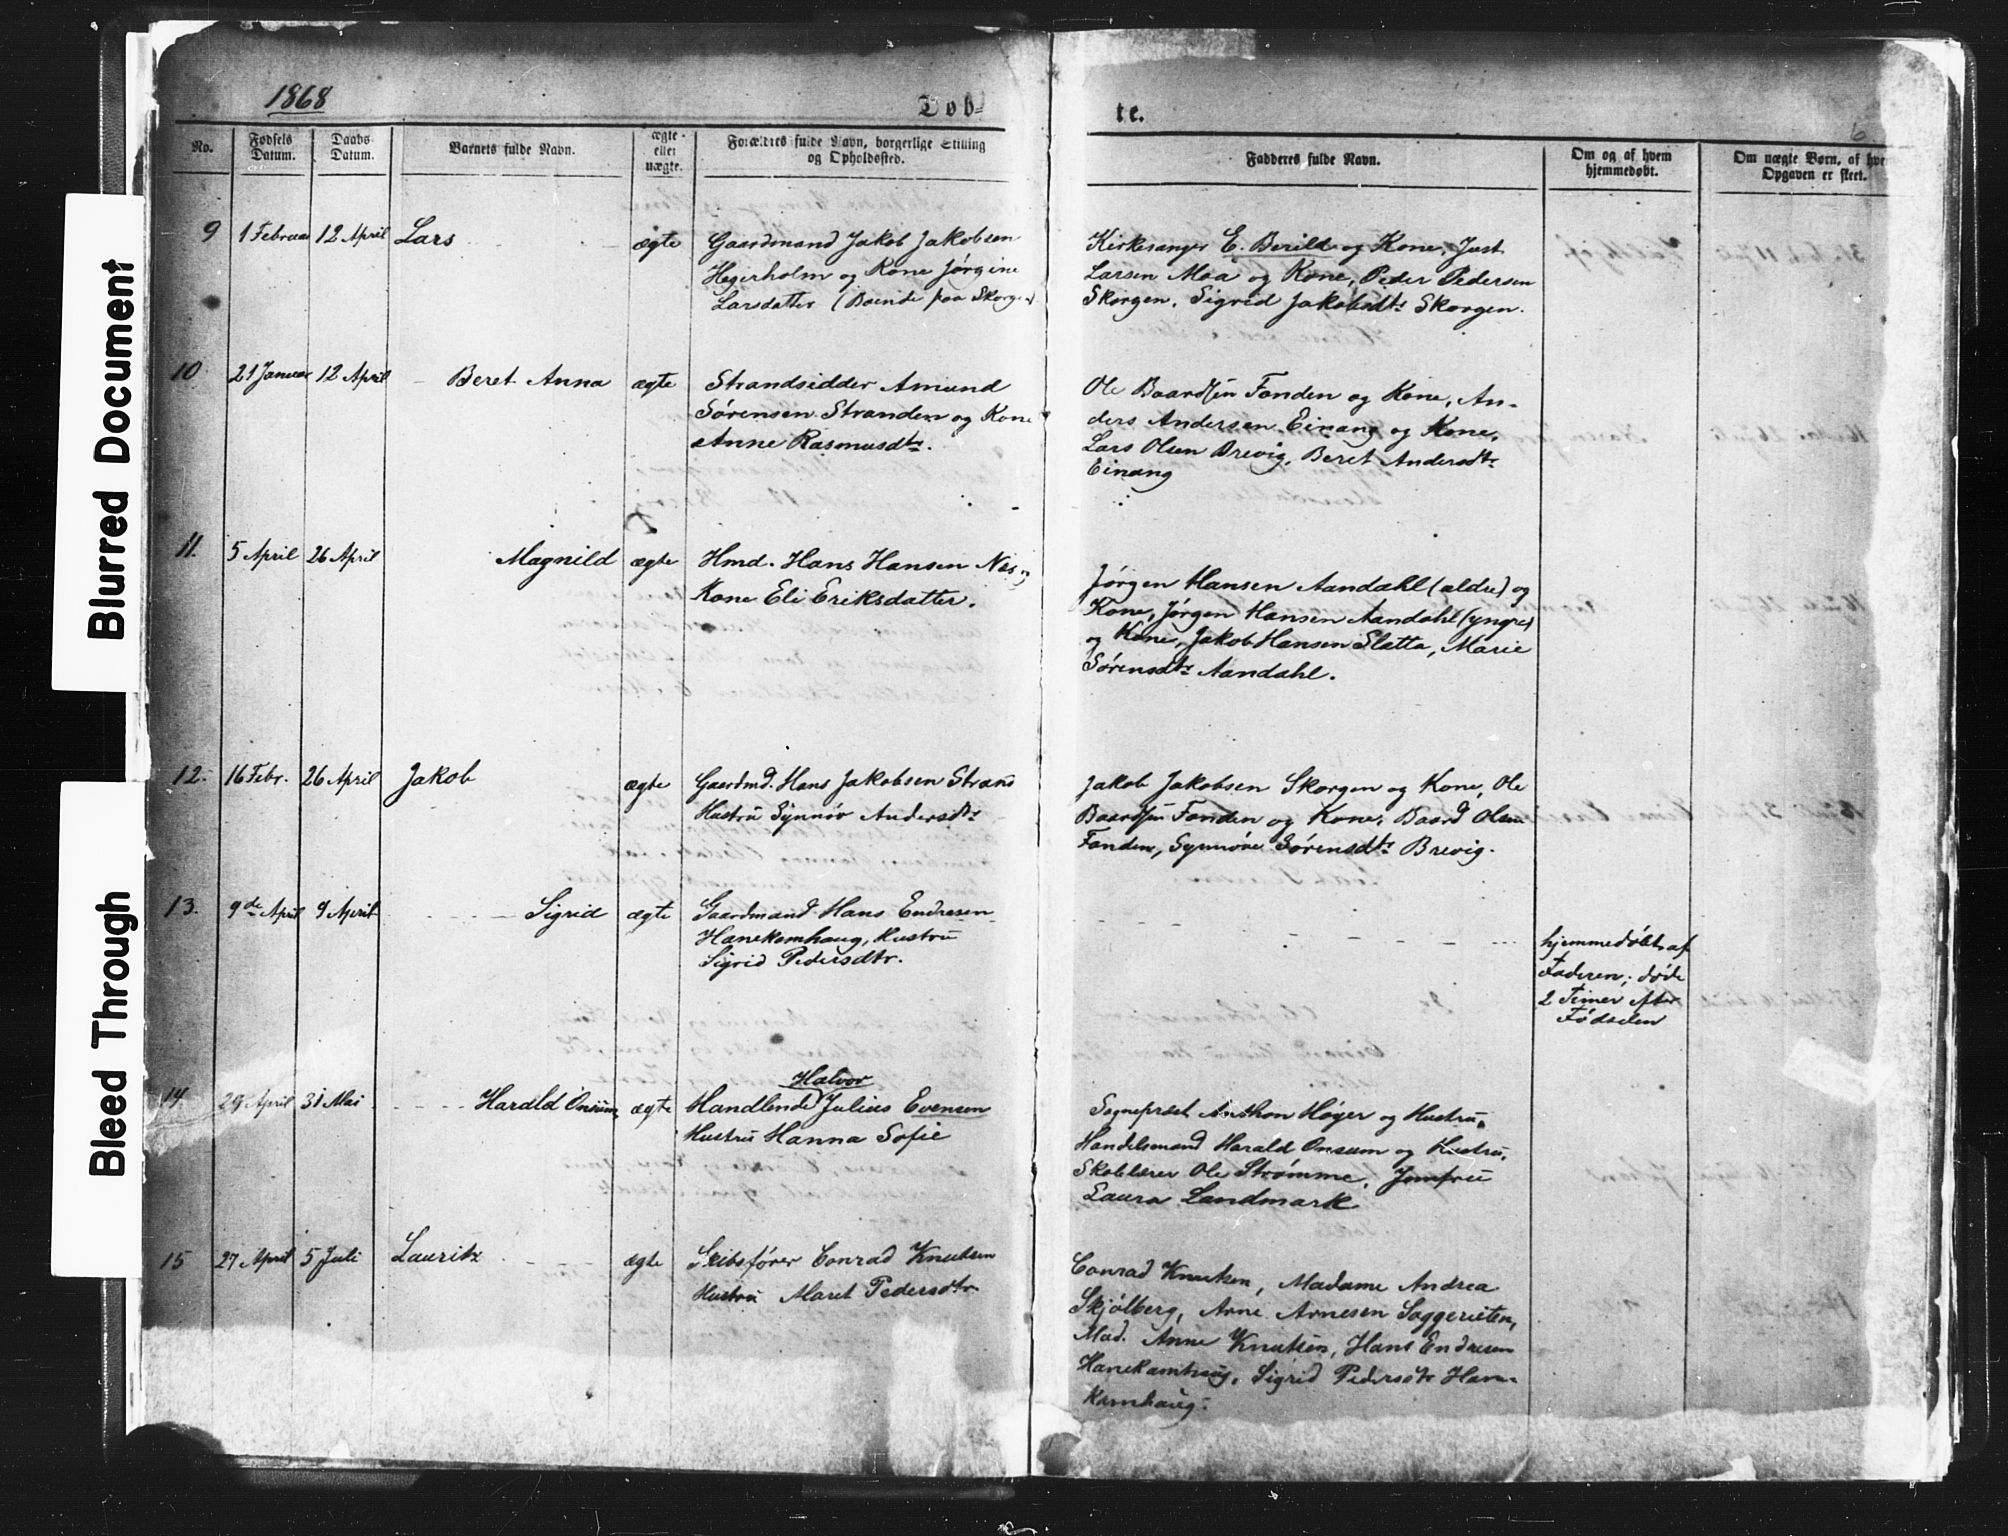 1868
Døb=
te.
6
No.
Fødsels Datum.
Daabs Datum.
Barnets fulde Navn.
ægte eller uægte.
Forældres fulde Navn, borgerlige Stilling og Opholdssted.
Fadderes fulde Navn.
Om og af hvem hjemmedøbt.
Om uægte Børn, af hvem Opgaven er skeet.
9 1 Februar 12 April Lars ægte Gaardmand Jakob Jakobsen
Hegerholm og Kone Jørgine
Larsdatter (Boende paa Skorgen)
Kirkesanger E. Berild og Kone, Just
Larsen Moa og Kone, Peder Pedersen
Skorgen, Sigrid Jakobsdtr Skorgen.
10 21 Januar 12 April Beret Anna ægte Strandsidder Amund
Sørensen Stranden og Kone
Anne Rasmusdtr.
Ole Baardsen Fonden og Kone, An-
ders Andersen Einang og Kone,
Lars Olsen Brevig, Beret Andersdtr
Einang
11. 5 April 26 April Magnild ægte Hmd. Hans Hansen Næs og
Kone Eli Eriksdatter.
Jørgen Hansen Aandahl (ældre) og
Kone, Jørgen Hansen Aandahl (yngre)
og Kone, Jakob Hansen Slatta, Marie
Sørensdtr Aandahl.
12. 16 Febr. 26 April Jakob ægte Gaardmd. Hans Jakobsen Strand
Hustru Synnøv Andersdtr
Jakob Jakobsen Skorgen og Kone, Ole
Baardsen Fonden og Kone, Baard Olsen
Fonden, Synnøve Sørensdtr Brevig.
13. 9de April 9 April Sigrid ægte Gaardmand Hans Endresen
Hanekamhaug, Hustru
Sigrid Pedersdtr.
hjemmedøbt af
Faderen; døde
2 Timer efter
Fødselen
14. 29 April 31 Mai Harald Onsum ægte Handlende Halvor Julius Evensen
Hustru Hanna Sofie
Sognepræst Anthon Høyer og Hustru,
Handelsmand Harald Onsum og Hustru,
Skolelærer Ole Strømme, Jomfru
Laura Landmark
15 27 April 5 Juli Lauritz ægte Skibsfører Conrad Knutsen
Hustru Maret Pedersdtr
Conrad Knutsen, Madame Andrea
Skjølberg, Arne Arnesen Soggerieten,
Mad. Anne Knutsen, Hans Endresen
Hanekamhaug, Sigrid Pedersdtr Hane-
kamhaug.
Blurred Document
Bleed Through